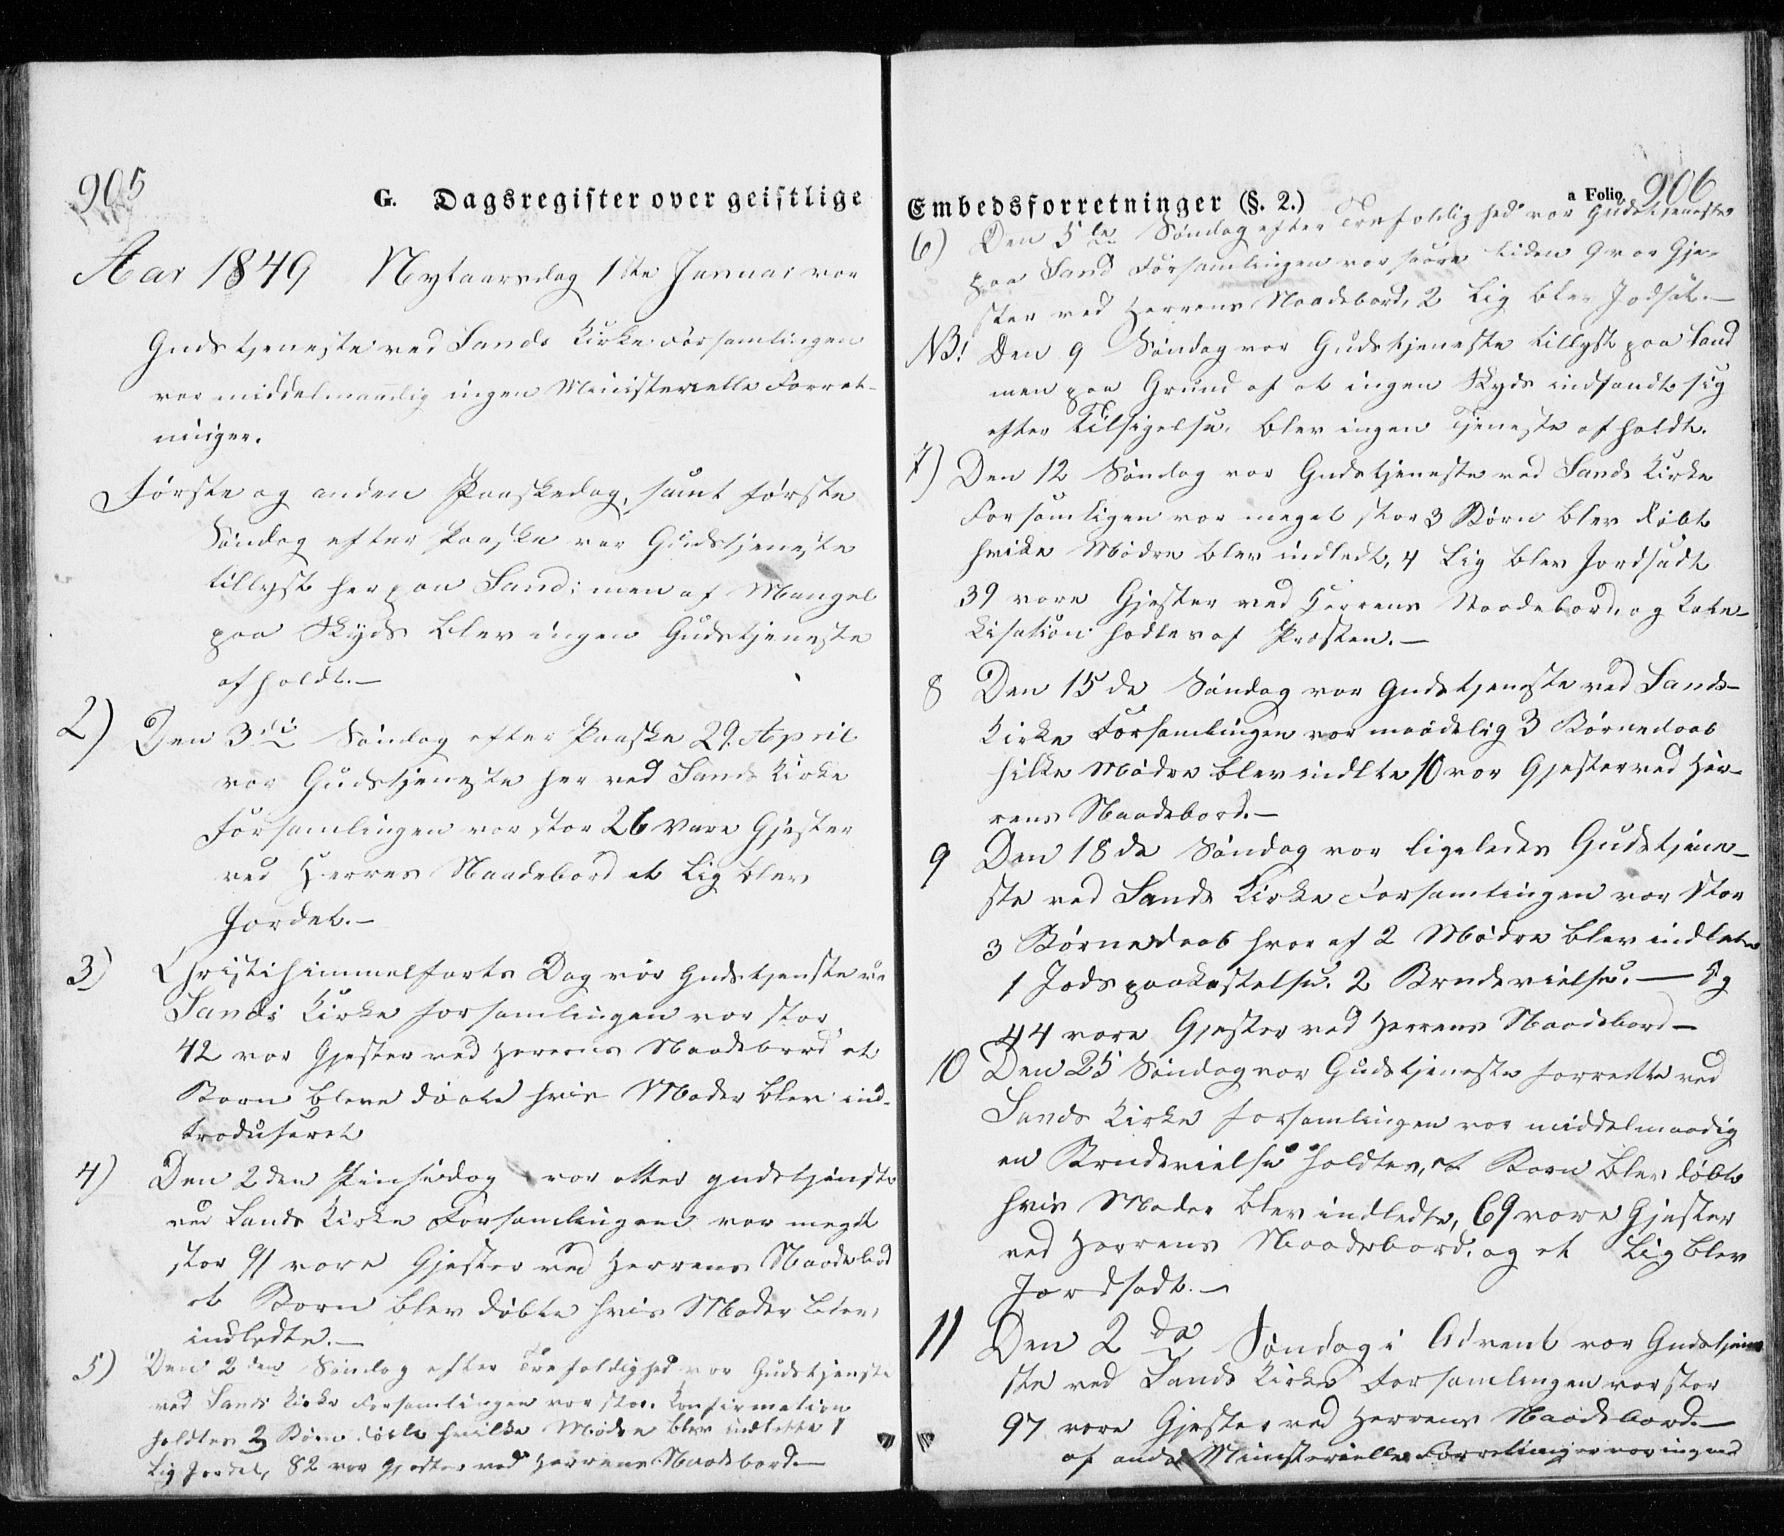 905
G. Dagsregister over geistlige
Aar 1849 Nytaarsdag 1ste Januar var
Gudstjeneste ved Sands Kirke Forsamlingen
var middelmaadig ingen Ministerielle Forret-
ninger.
Første og anden Paaskedag, samt første
Søndag efter Paaske var Gudstjeneste
tillyst her paa Sand; men af Mangel
paa Skyds blev ingen Gudstjeneste
afholdt.—
2) Den 3die Søndag efter Paaske 29. April
var Gudstjeneste her ved Sands Kirke
Forsamlingen var stor 26 vare Gjester
ved Herres Naadebord et Lig blev
Jordet.—
3) Christihimmelfarts Dag var Gudstjenste ve
Sands Kirke forsamlingen var stor
42 var Gjester ved Herrens Naadebord et
Barn bleve døbte hvis Moder blev ind-
troduseret
4) Den 2den Pinsedag var atter gudstjenste
ved Sands Kirke Forsamlingen var meget
stor 91 vare Gjester ved Herrens Naadebord
et Barn blev døbte hvis Moder blev
indledte.—
5) Den 2den Søndag efter Trefoldighed var Gudstjenste
ved Sands Kirke Forsamlingen var stor. Konfirmation
holdtes 2 Børn døbte hvilke Mødre blev indledte 1
Lig Jordet, 82 var Gjester ved Herrens Naadebord—
Embedsforretninger (§. 2.) a Folio 906
6) Den 5te Søndag efter Trefoldighed var Gudstjeneste
paa Sand Forsamlingen var liden 9 var Gje-
ster ved Herrens Naadebord, 2 Lig blev Jodsat.—
NB! Den 9 Søndag var Gudstjeneste tillyst paa Sand
men paa Grund af at ingen Skyds indfandt sig
efter Tilsigelse, blev ingen Tjeneste afholdt.
7) Den 12 Søndag var Gudstjeneste ved Sands Kirke
Forsamligen var meget stor 3 Børn blev døbt
hvike Mødre blev indledt, 4 Lig blev Jordsadt
39 vare Gjester ved Herrens Naadebord, og Kate-
kisation hodtes af Præsten.—
8 Den 15de Søndag var Gudstjeneste ved Sands-
Kirke Forsamlingen var maadelig 3 Børnedaab
hilke Mødre blev indlte 10 var Gjester ved Her-
rens Naadebord.—
9 Den 18de Søndag var ligeledes Gudstjene-
ste ved Sands Kirke Forsamlingen var stor
3 Børnedaab hvor af 2 Mødre blev indledte
1 Jodspaakastelse. 2 Brudevielse.— Og
44 vare Gjester ved Herrens Naadebord—
10 Den 25 Søndag var Gudstjeneste forrette ved
Sands Kirke forsamlingen var middelmaadig
en Brudevielse holdtes, et Barn blev døbte
hvis Moder blev indledte, 69 vare Gjester
ved Herrens Naadebord. og et Lig blev
Jordsadt.—
11 Den 2da Søndag i Advent var Gudstjene
ste ved Sands Kirke Forsamlingen var stor
97 vare Gjester ved Herrens Naadebord.—
af andre Ministerielle Forretninger var ingen